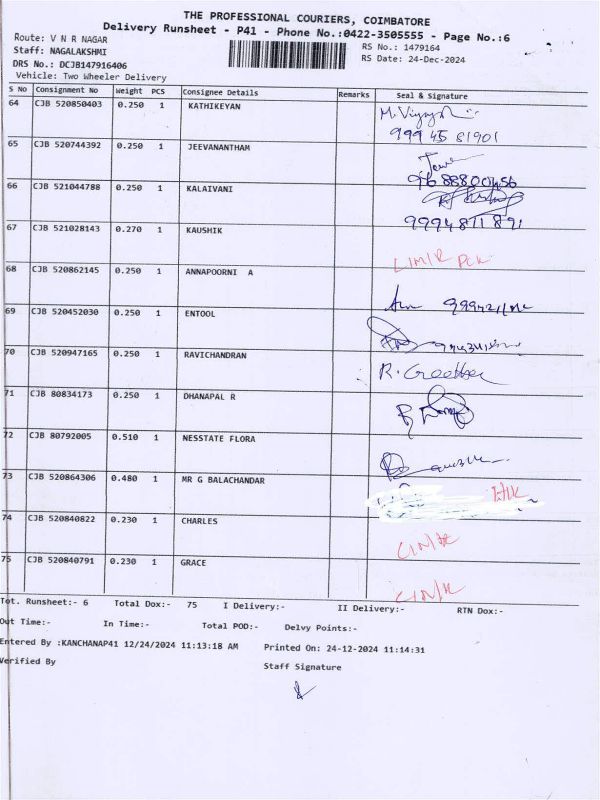 THE PROFESSIONAL COURIERS, COIMBATORE
Delivery Runsheet - P41 - Phone No.:0422-3505555 - Page No.:6
Route: V N R NAGAR
RS No.: 1479164
Staff: NAGALAKSHMI
RS Date: 24-Dec-2024
DRS No.: DCJB147916406
Vehicle: Two Wheeler Delivery
S No Consignment No Weight PCS Consignee Details Remarks Seal & Signature
64 CJB 520850403 0.250 1 KATHIKEYAN
999 45 81901
65 CJB 520744392 0.250 1 JEEVANANTHAM
66 CJB 521044788 0.250 1 KALAIVANI
9994871891
67 CJB 521028143 0.270 1 KAUSHIK
68 CJB 520862145 0.250 1 ANNAPOORNI A
69 CJB 520452030 0.250 1 ENTOOL
70 CJB 520947165 0.250 1 RAVICHANDRAN
71 CJB 80834173 0.250 1 DHANAPAL R
72 CJB 80792005 0.510 1 NESSTATE FLORA
73 CJB 520864306 0.480 1 MR G BALACHANDAR
74 CJB 520840822 0.230 1 CHARLES
75 CJB 520840791 0.230 1 GRACE
Tot. Runsheet:- 6 Total Dox:- 75 I Delivery:- II Delivery:- RTN Dox:-
Out Time:- In Time:- Total POD:- Delvy Points:-
Entered By :KANCHANAP41 12/24/2024 11:13:18 AM Printed On: 24-12-2024 11:14:31
Verified By Staff Signature